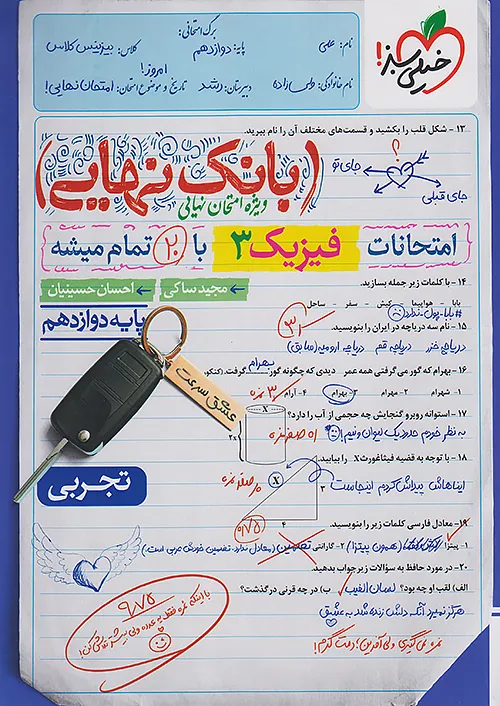 برگ امتحانی:
نام: علی
پایه: دوازدهم
کلاس: بیزینس کلاس
امروز!
نام خانوادگی: ولی‌زاده
دبیرستان: رشد
تاریخ و موضوع امتحان: امتحان نهایی!
خیلی سبز!
۱۳ - شکل قلب را بکشید و قسمت‌های مختلف آن را نام ببرید.
؟
جای تو
جای قبلی
(بانک نهایی)
ویژه امتحان نهایی
{امتحانات فیزیک ۳ با ۲۰ تمام میشه}
مجید ساکی
احسان حسینیان
پایه دوازدهم
۱۴ - با کلمات زیر جمله بسازید.
بابا - هواپیما - کیش - سفر - ساحل
#بابا_پول_نداره
۱۵ - نام سه دریاچه در ایران را بنویسید.
۳
دریاچه خزر دریاچه قم دریاچه ارومیه (سابق)
۱۶ - بهرام که گور می‌گرفتی همه عمر دیدی که چگونه گور بهرام گرفت. (کنکور
۱- شهرام ۲- مهرام ۳- بهرام ۴- آرام
۳۰ نمره
عشق سرعت
۱۷ - استوانه روبرو گنجایش چه حجمی از آب را دارد؟
به نظر خودم حدود یک لیوان و نیم!
اه صفر نمره
X
۲x
۱۸ - با توجه به قضیه فیثاغورث X را بیابید.
ایناهاش پیداش کردم اینجاست
صفر نمره
X
۳
۴
تجربی
۰/۷۵
۱۹- معادل فارسی کلمات زیر را بنویسید.
۱- پیتزا (همون پیتزا) ۲- گارانتی تضمین (معادل ندارد. تضمین خودش عربی است.)
۲۰ - در مورد حافظ به سؤالات زیر جواب بدهید.
الف) لقب او چه بود؟ لسان الغیب ب) در چه قرنی درگذشت؟
هرگز نمیرد آنکه دلش زنده شد به عشق
نمره نمی‌گیری ولی آفرین؛ دمت گرم!
۹/۷۵
با اینکه نمره فقط یه عدده ولی بیشتر تلاش کن!